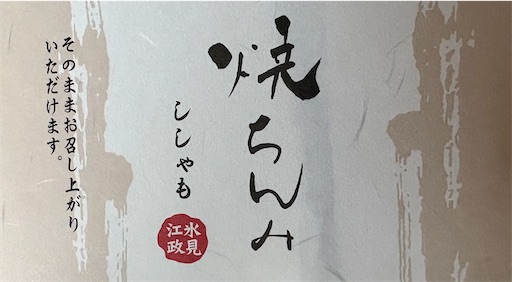 焼ちんみ
ししゃも
氷見
江政
そのままお召し上がり
いただけます。